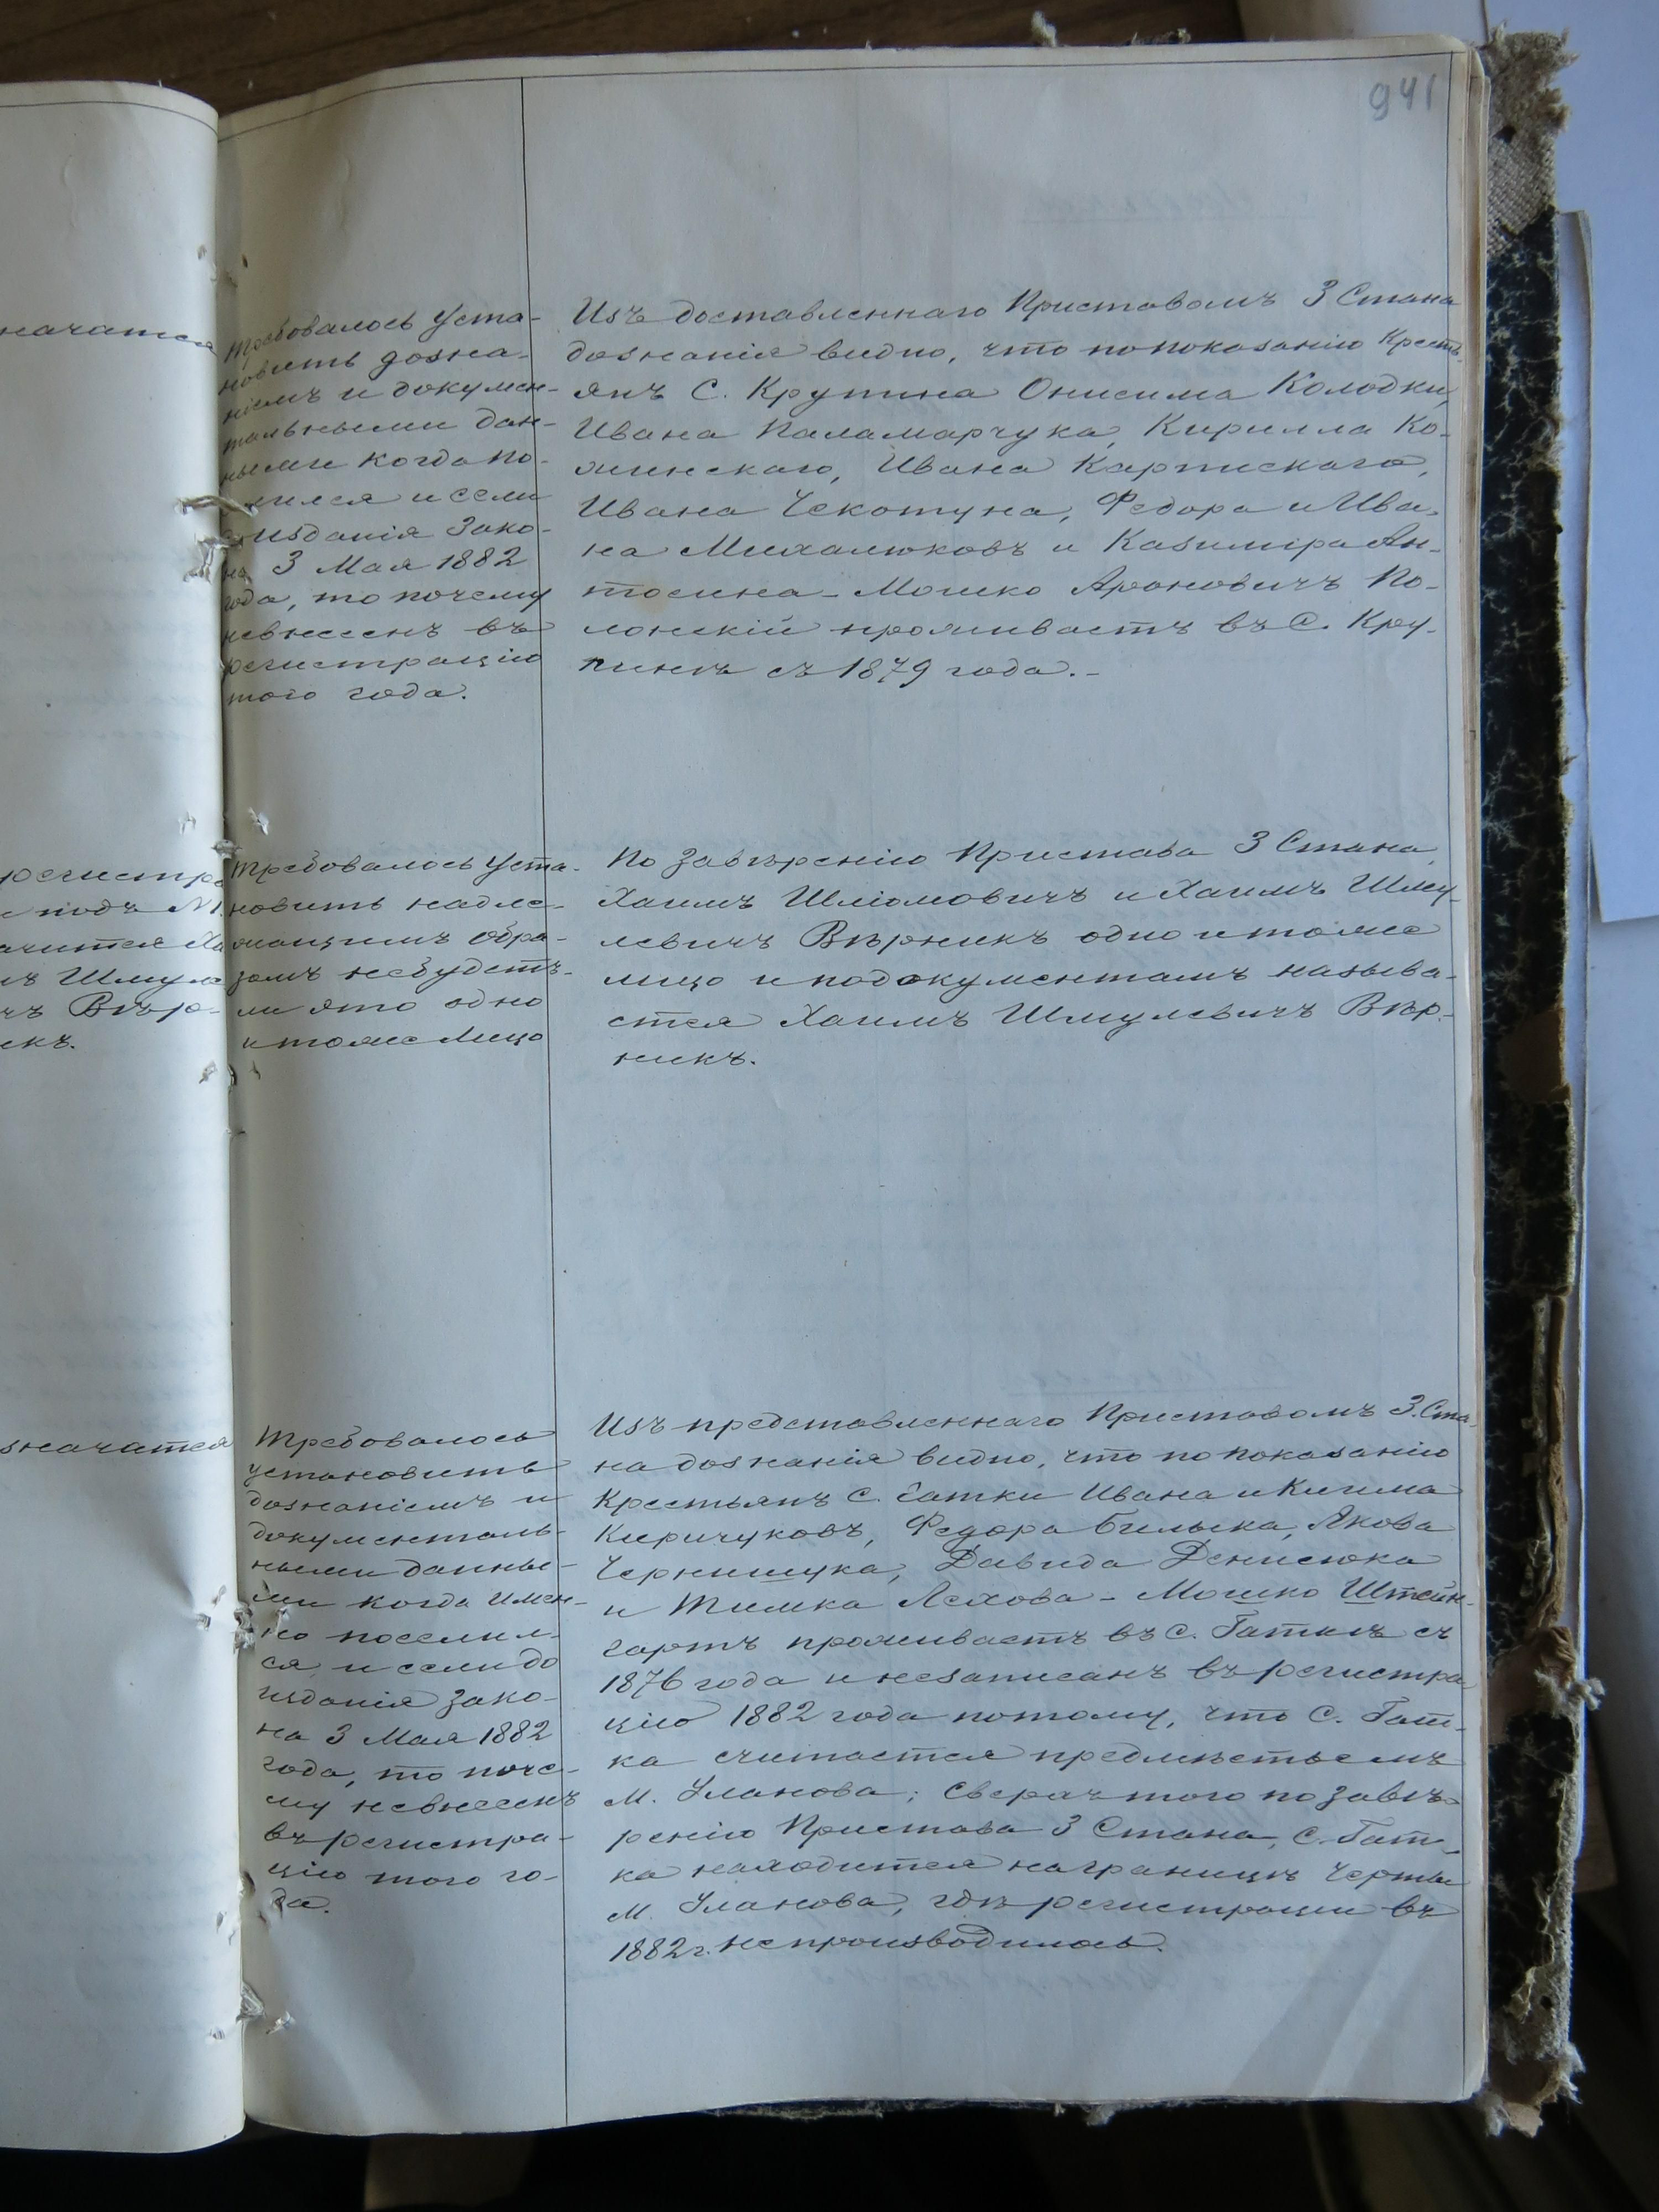 941
начатся
Требовалось уста-
новить дозна-
ніемъ и докумен-
тальными дан-
ными когда по-
лился и если
изданія Зако-
на 3 Мая 1882
года, то почему
невнесенъ въ
регистрацію
того года.
Изъ доставленнаго Приставомъ 3 Стана
дознанія видно, что попоказанію Кресть-
янъ С. Крупина Онисима Колодки,
Ивана Паламарчука, Кирилла Ко-
жинскаго, Ивана
Ивана Чекотуна, Федора и Ива-
на Михалюковъ и Казиміра Ан-
тосина - Мошко Ароновичъ По-
лонскій проживаетъ въ С. Кру-
пинъ съ 1879 года. -
регистра
подъ №1.
ачится Ха
мъ Шмуле
чъ Вѣр-
икъ.
Требовалось уста-
новить надле-
жащимъ обра-
зомъ небудетъ-
ли это одно
итоже лицо
По завѣренію Пристава 3 Стана,
Хаимъ Шліомовичъ и Хаимъ Шму-
левичъ Вѣрникъ одно итоже
лицо и подокументамъ называ-
ется Хаимъ Шмулевичъ Вѣр-
никъ.
значатся
Требовалось
установить
дознаніемъ и
документаль-
ными данны-
ми когда имен-
но поселил-
ся и если до
изданія зако-
на 3 Мая 1882
года, то поче-
му невнесенъ
въ регистра-
цію того го-
да.
Изъ представленнаго Приставомъ 3. Ста-
на дознанія видно, что по показанію
Крестьянъ С. Гатки Ивана и
Киричуковъ, Федора Билыка, Якова
Чернишука, Давида Денисюка
и Тимка Лехова - Мошко Штейн-
гартъ проживаетъ въ С. Гаткѣ съ
1876 года и незаписанъ въ регистра-
цію 1882 года потому, что С. Гат-
ка считается предмѣстьемъ
М. Уланова; сверхъ того по завѣ-
ренію Пристава 3 Стана, С. Гат-
ка находится награницѣ черты
М. Уланова, гдѣ регистраціи въ
1882 г. непроизводилось.